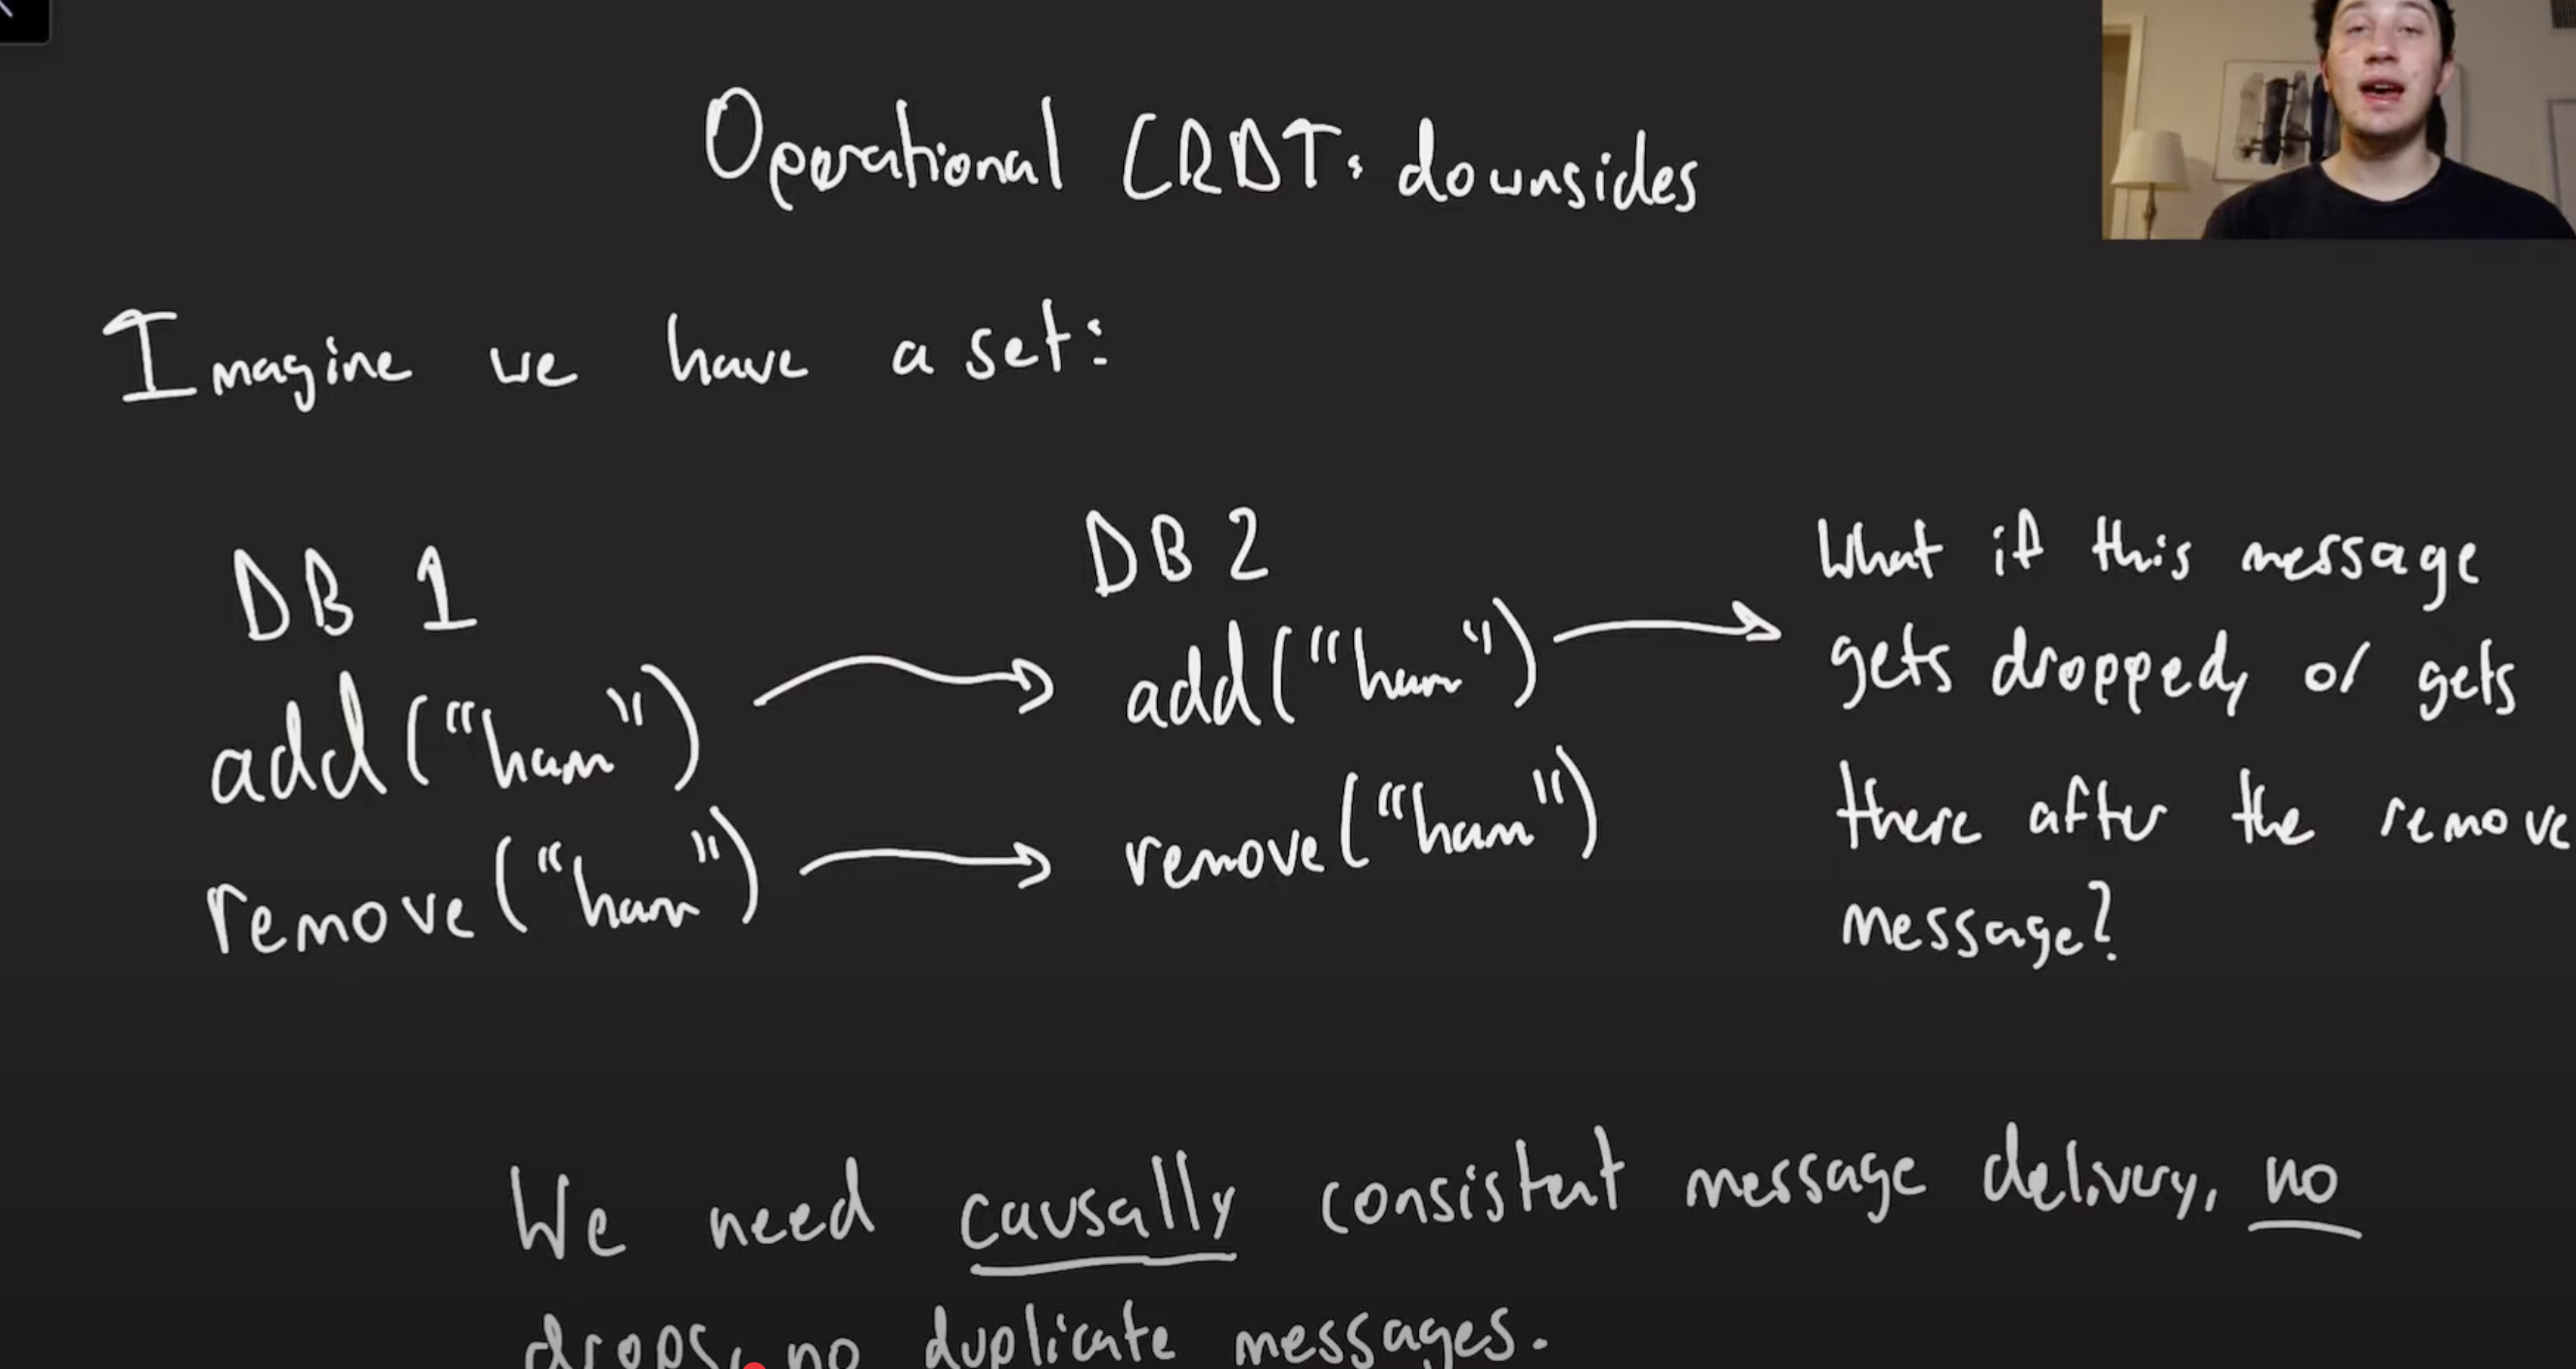 Operational CRDTs downsides
Imagine we have a set:
DB 1
add("ham")
remove("ham")
DB 2
add("ham")
remove("ham")
What if this message
gets dropped, or gets
there after the remove
message?
We need causally consistent message delivery, no
drops, no duplicate messages.